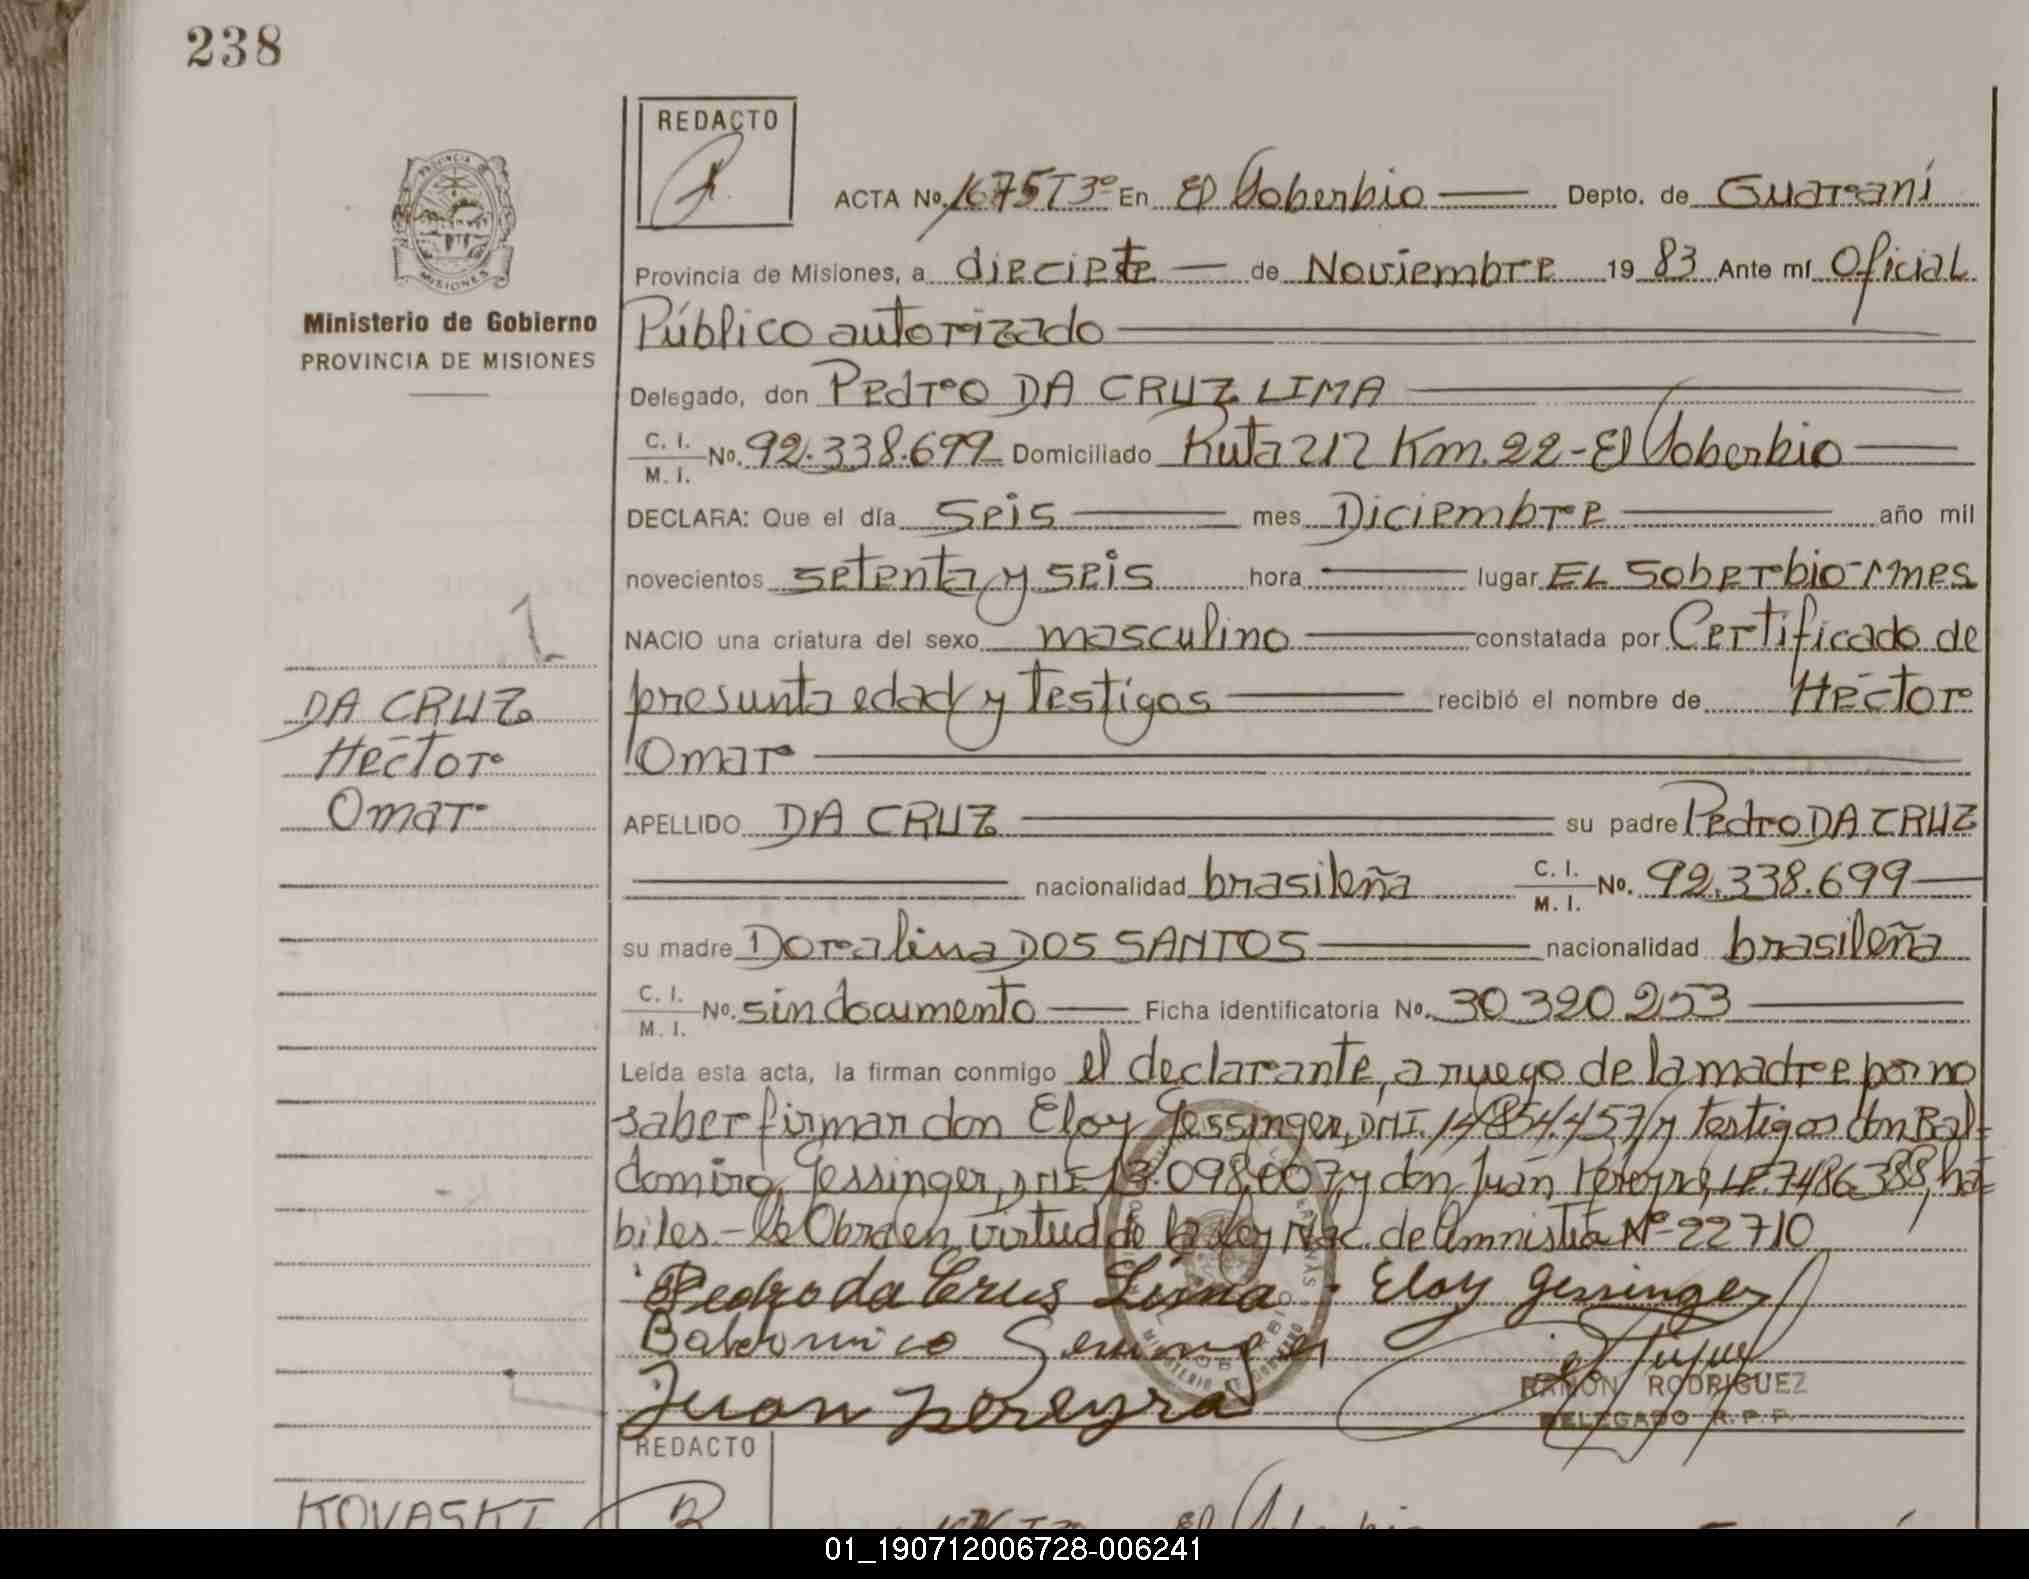 238
REDACTO
ACTA No. 1675 T3º En El Soberbio Depto. de Guaraní
Provincia de Misiones, a dieciete de Noviembre 19 83 Ante mí Oficial
Ministerio de Gobierno
PROVINCIA DE MISIONES
Público autorizado
Delegado, don Pedro DA CRUZ LIMA
C. I. / M. I. No. 92.338.699 Domiciliado Ruta 212 Km. 22-El Soberbio
DECLARA: Que el día seis mes Diciembre año mil
novecientos setenta y seis hora lugar EL Soberbio-Mnes
NACIO una criatura del sexo masculino constatada por Certificado de
presunta edad y testigos recibió el nombre de Héctor
Omar
DA CRUZ
Héctor
Omar
APELLIDO DA CRUZ su padre Pedro DA CRUZ
nacionalidad brasileña C. I. / M. I. No. 92.338.699
su madre Doralina DOS SANTOS nacionalidad brasileña
C. I. / M. I. No. sin documento Ficha identificatoria No. 30 320 253
Leída esta acta, la firman conmigo el declarante, a ruego de la madre por no
saber firmar don Eloy Jessinger, DNI. 14854.457 y testigos don Bal=
domino Jessinger, DNI 13.098.007 y don Juán Pereyra, LE. 7486388, há=
biles.- Se Obra en virtud de la ley Nac. de Amnistía Nº 22710
Pedro da Crus Lima Eloy Jessinger
Juan Pereyra
RAMON RODRIGUEZ
DELEGADO R. P. P.
REDACTO
KOVASKI
01_190712006728-006241